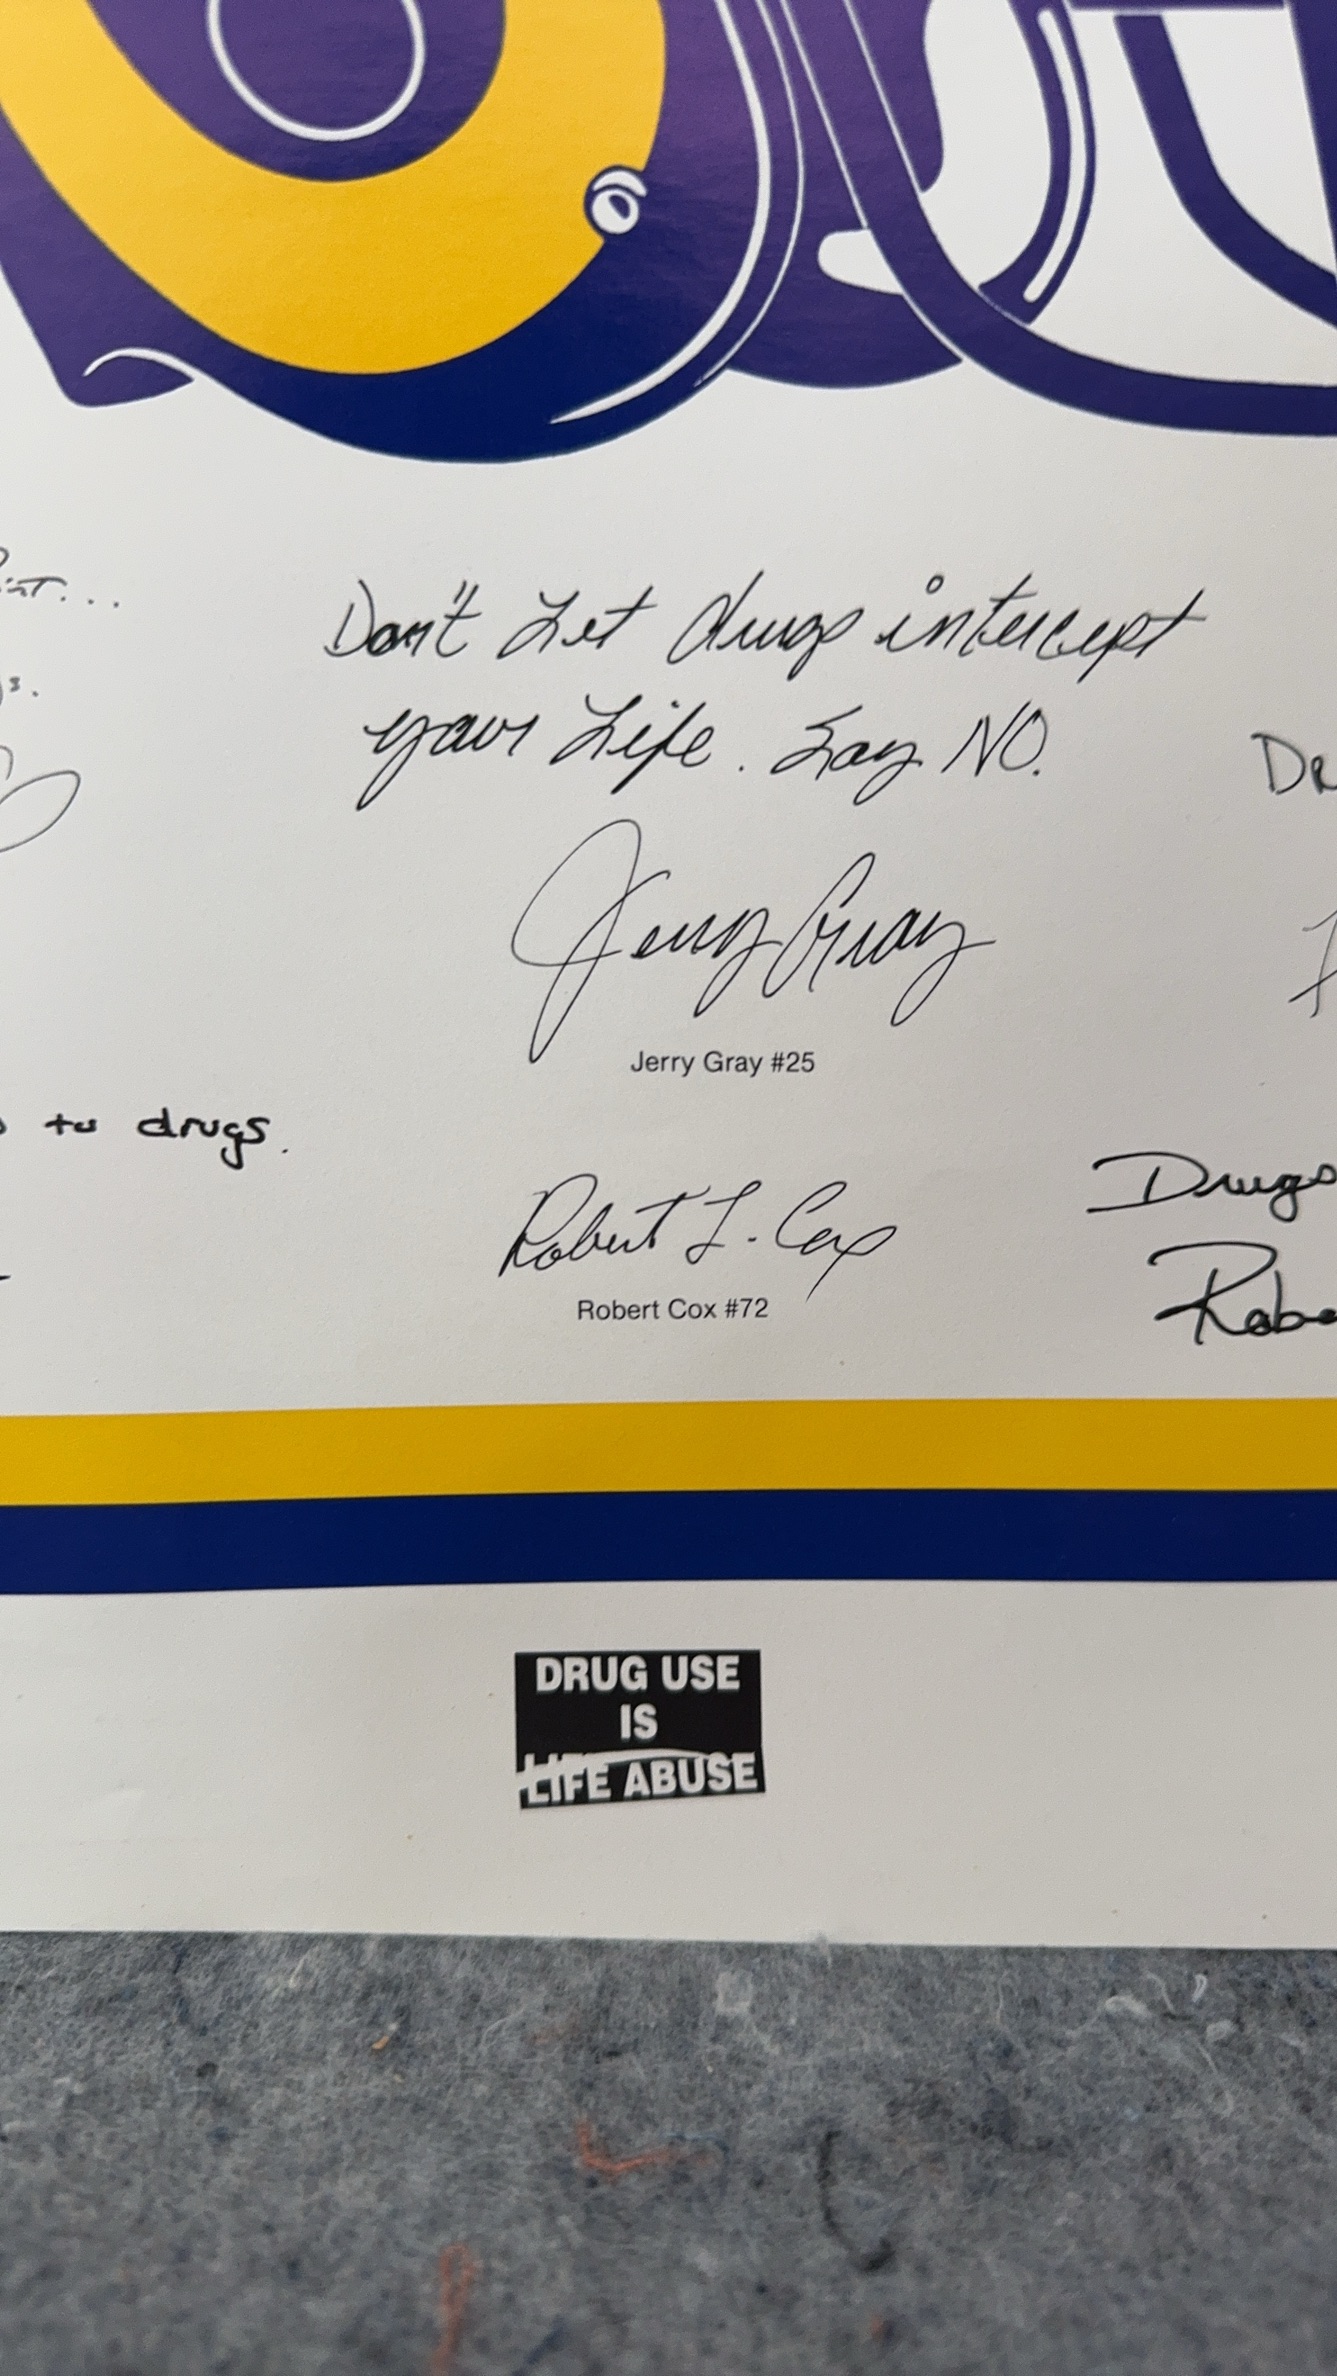 Don't Let drugs intercept
your Life. Say NO.
DR
Jerry Gray
Jerry Gray #25
to drugs.
Drugs
Robert L. Cox
Robert Cox #72
DRUG USE
IS
LIFE ABUSE